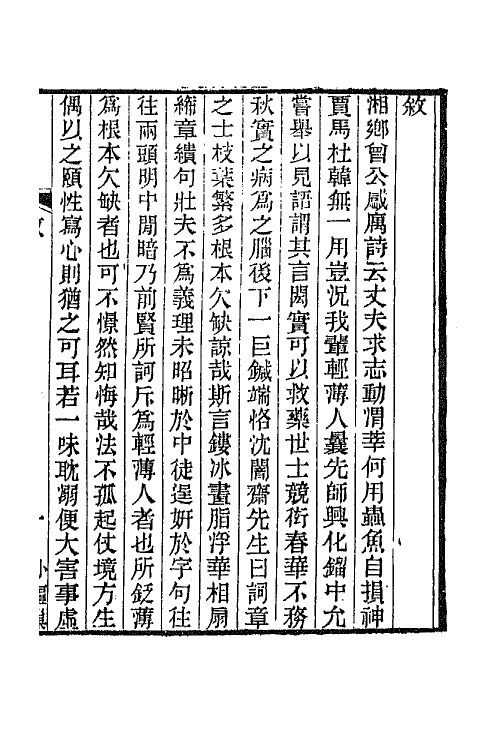 敘
湘鄉曾公感寓詩云丈夫求志動渭莘何用蟲魚自損神
賈馬杜韓無一用豈況我輩輕薄人曩先師興化鎦中允
嘗舉以見語謂其言閎實可以救藥世士競衒春華不務
秋實之病爲之腦後下一巨鍼端恪沈闇齋先生曰詞章
之士枝葉繁多根本欠缺諒哉斯言鏤冰畫脂浮華相扇
絺章繢句壯夫不爲義理未昭晰於中徒逞妍於字句往
往兩頭明中閒暗乃前賢所訶斥爲輕薄人者也所鉽薄
爲根本欠缺者也可不憬然知悔哉法不孤起仗境方生
偶以之頤性寫心則猶之可耳若一味耽溺便大害事虛